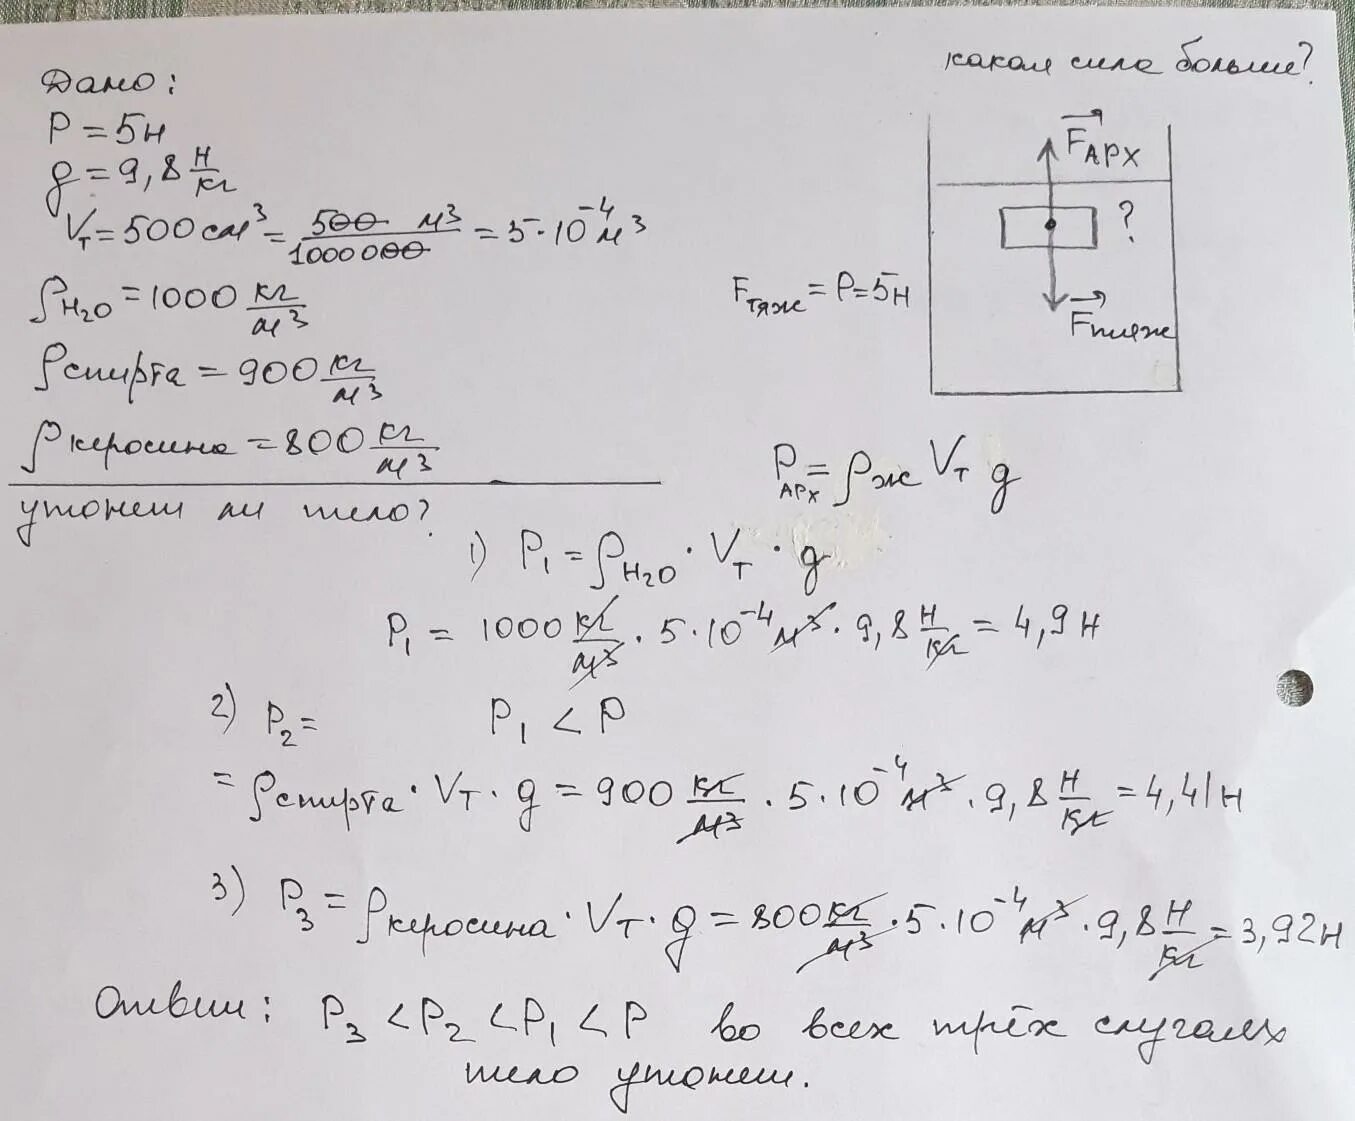 какая сила больше?
Дано:
P = 5н
g = 9,8 н/кг
Vт = 500 см³ = 500 м³/1000000 = 5·10⁻⁴ м³
ρH₂O = 1000 кг/м³
ρспирта = 900 кг/м³
ρкеросина = 800 кг/м³
утонет ли тело?
FАРХ
?
Fтяж = P = 5н
Fтяж
PАРХ = ρж Vт g
1) P₁ = ρH₂O · Vт · g
P₁ = 1000 кг/м³ · 5·10⁻⁴ м³ · 9,8 н/кг = 4,9н
P₁ < P
2) P₂ =
= ρспирта · Vт · g = 900 кг/м³ · 5·10⁻⁴ м³ · 9,8 н/кг = 4,41н
3) P₃ = ρкеросина · Vт · g = 800 кг/м³ · 5·10⁻⁴ м³ · 9,8 н/кг = 3,92н
Ответ: P₃ < P₂ < P₁ < P во всех трёх случаях
тело утонет.